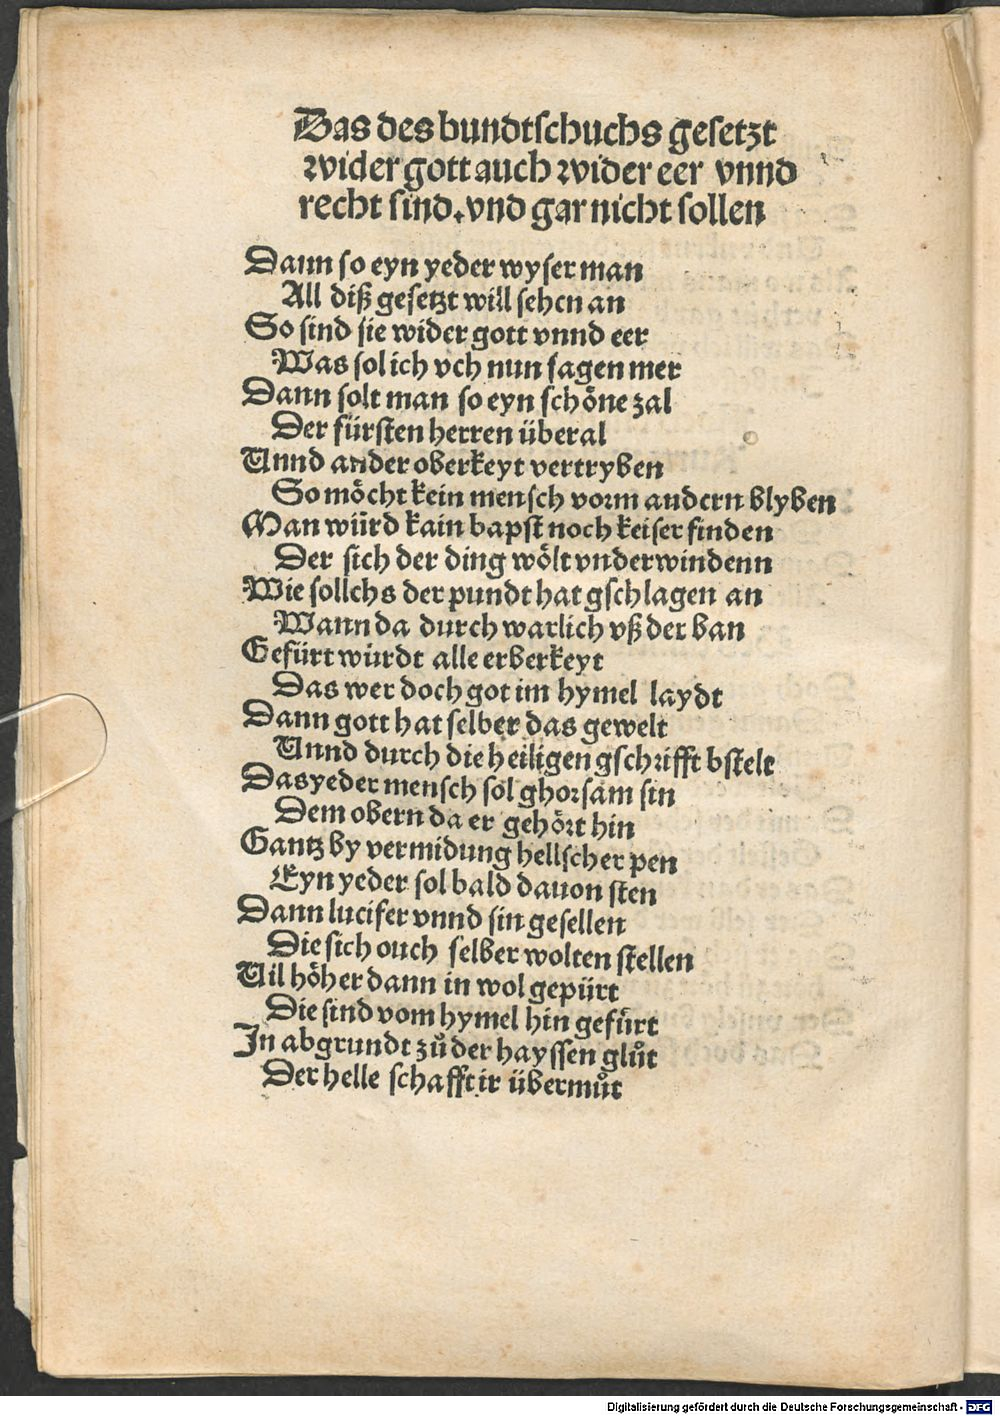 Das des bundtschuchs gesetzt
wider gott auch wider eer vnnd
recht sind. vnd gar nicht sollen
Dann so eyn yeder wyser man
All diß gesetzt will sehen an
So sind sie wider gott vnnd eer
Was sol ich vch nun sagen mer
Dann solt man so eyn schöne zal
Der fürsten herren überal
Vnnd ander oberkeyt vertryben
So möcht kein mensch vorm andern blyben
Man würd kain bapst noch keiser finden
Der sich der ding wölt vnderwindenn
Wie sollchs der pundt hat gschlagen an
Wann da durch warlich vß der ban
Gefürt wurdt alle erberkeyt
Das wer doch got im hymel laydt
Dann gott hat selber das gewelt
Vnnd durch die heiligen gschrifft bstelt
Das yeder mensch sol ghorsam sin
Dem obern da er gehört hin
Gantz by vermidung hellscher pen
Eyn yeder sol bald dauon sten
Dann lucifer vnnd sin gesellen
Die sich ouch selber wolten stellen
Vil höher dann in wol gepürt
Die sind vom hymel hin gefürt
In abgrundt zů der hayssen glůt
Der helle schafft ir übermůt
Digitalisierung gefördert durch die Deutsche Forschungsgemeinschaft - DFG